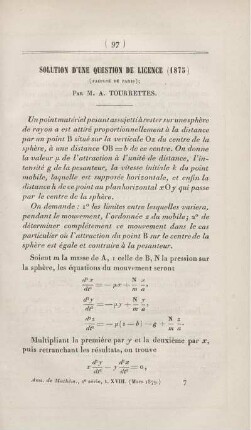 ( 97 )
SOLUTION D'UNE QUESTION DE LICENCE (1875)
(FACULTÉ DE PARIS);
PAR M. A. TOURRETTES.
Un point matériel pesant assujetti à rester sur une sphère
de rayon a est attiré proportionnellement à la distance
par un point B situé sur la verticale Oz du centre de la
sphère, à une distance OB = b de ce centre. On donne
la valeur μ de l'attraction à l'unité de distance, l'in-
tensité g de la pesanteur, la vitesse initiale k du point
mobile, laquelle est supposée horizontale, et enfin la
distance h de ce point au plan horizontal xOy qui passe
par le centre de la sphère.
On demande : 1° les limites entre lesquelles variera,
pendant le mouvement, l'ordonnée z du mobile; 2° de
déterminer complétement ce mouvement dans le cas
particulier où l'attraction du point B sur le centre de la
sphère est égale et contraire à la pesanteur.
Soient m la masse de A, z celle de B, N la pression sur
la sphère, les équations du mouvement seront
d²x/dt² = — μx + N/m x/a,
d²y/dt² = — μy + N/m y/a,
d²z/dt² = — μ(z — b) — g + N/m z/a.
Multipliant la première par y et la deuxième par x,
puis retranchant les résultats, on trouve
x d²y/dt² — y d²x/dt² = 0,
Ann. de Mathém., 2e série, t. XVIII. (Mars 1879.) 7